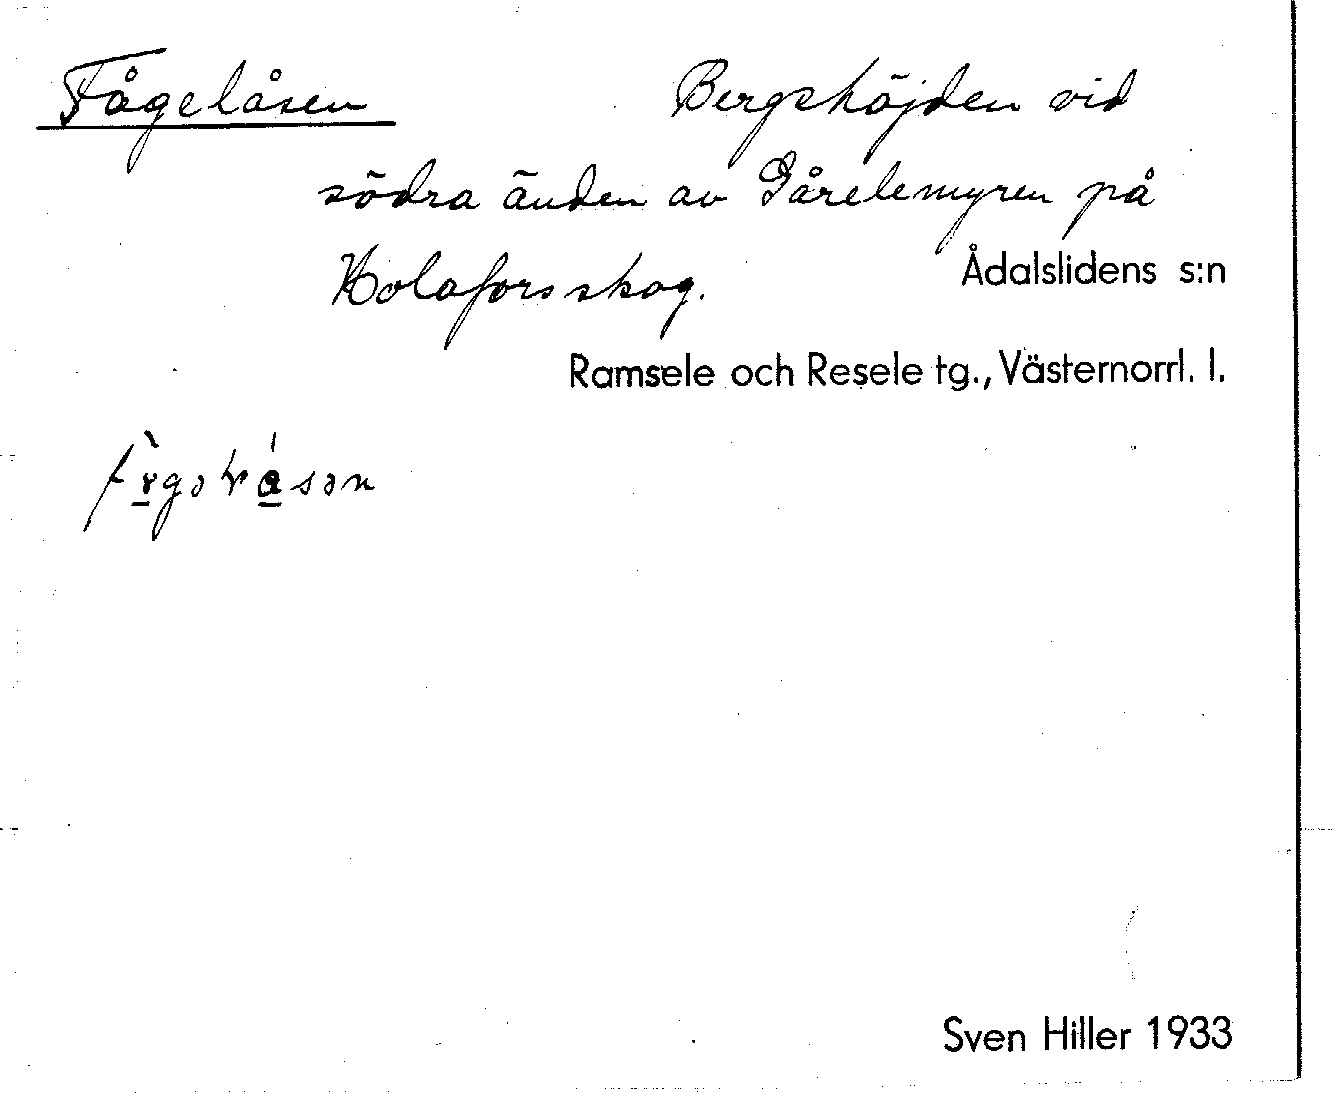 Fågelåsen Bergshöjden vid
södra änden av Gårelemyren på
Holafors skog. Ådalslidens s:n
Ramsele och Resele tg., Västernorrl. l.
Sven Hiller 1933